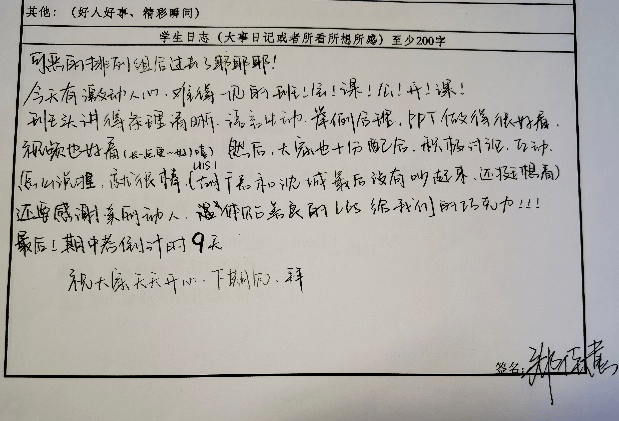 其他：（好人好事、精彩瞬间）
学生日志（大事日记或者所看所想所感）至少200字
可恶的排列组合过去了耶耶耶！
今天有激动人心、难得一见的班！会！课！公！开！课！
班头讲得条理清晰、语言生动、举例合理，PPT做得很好看，
视频也好看 然后，大家也十份配合，积极讨论、互动，
怎么说哩，就很棒 最后没有吵起来，还挺想看）
还要感谢 的 给我们的巧克力！！！
最后！期中考倒计时9天
祝大家天天开心、下期见、拜
签名：